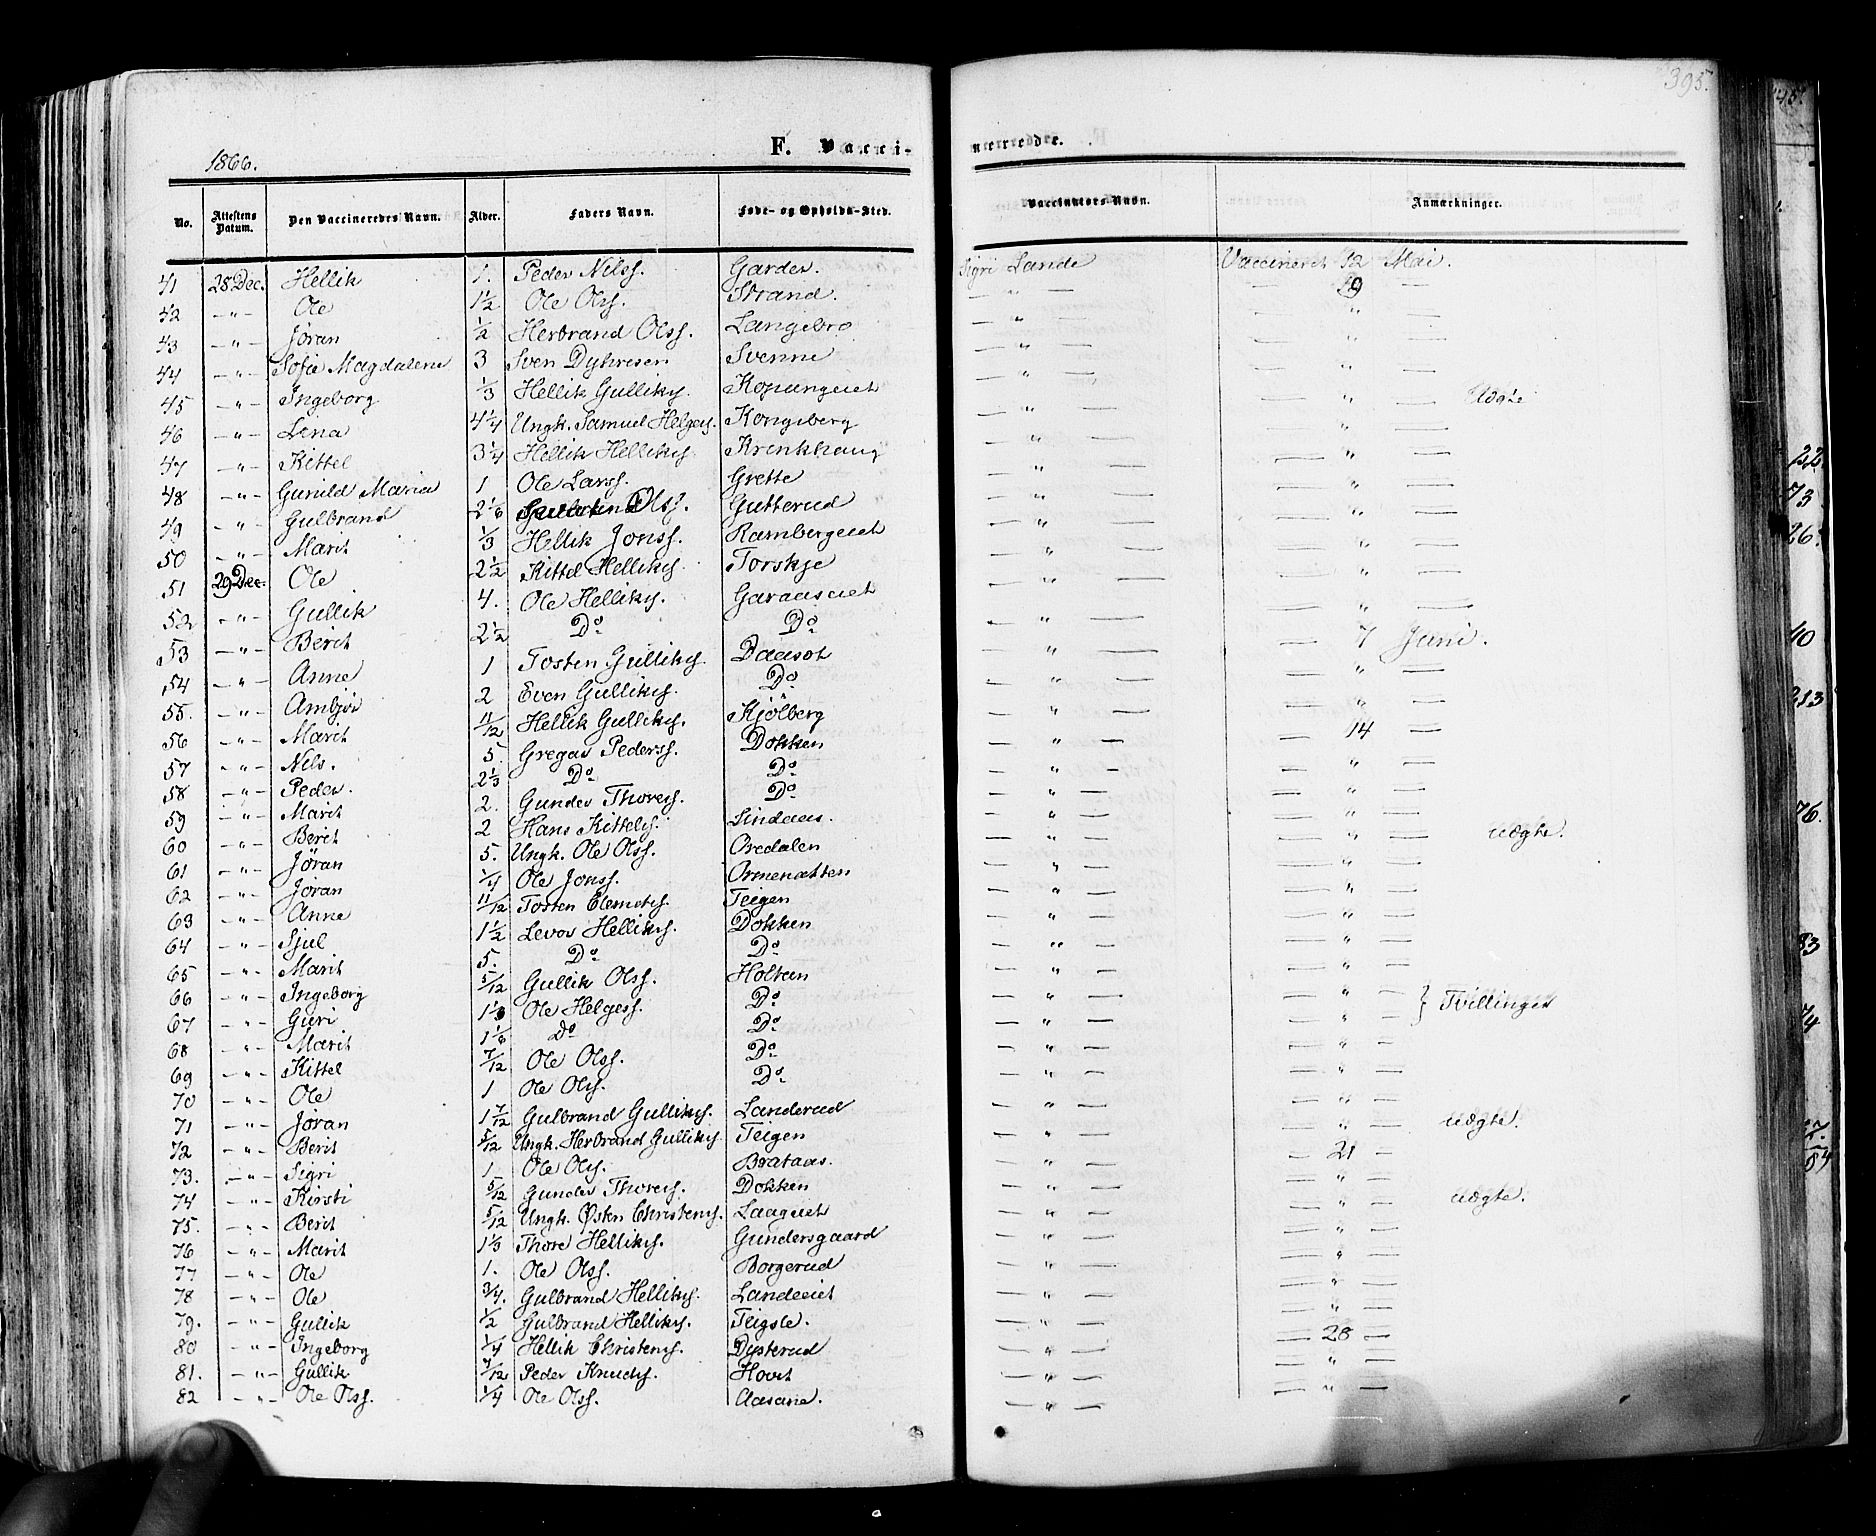 395.
1866.
F. Vacci-
nerede.
No. Attestens Datum. Den Vaccineredes Navn. Alder. Faders Navn. Føde- og Opholds-Sted. Vaccinators Navn. Anmærkninger.
41 28 Dec. Hellik 1. Peder Nilss. Garder. Sigri Lande Vaccineret 12 Mai.
42 — " — Ole 1 1/2 Ole Olss. Strand. — " — — 19 —
43 — " — Jøran 1/2 Herbrand Olss. Langebro — " — — " —
44 — " — Sofie Magdalene 3 Sven Svenne — " — — " —
45 — " — Ingeborg 1/3 Hellik Gulliks. — " — — " —
46 — " — Lena 4 1/4 Ungk. Samuel Helges. Kongsberg — " — — " — Uægte
47 — " — Kittel 3 1/4 Hellik Helliks. Krinkhaug — " — — " —
48 — " — Gunild Maria 1 Ole Larss. Grette — " — — " —
49 — " — Gulbrand 2 1/6 Olss. Gutterud — " — — " —
50 — " — Marit 1/3 Hellik Jonss. Rambergeiet — " — — " —
51 29 Dec. Ole 2 1/2 Kittel Helliks. Torskje — " — — " —
52 — " — Gullik 4. Ole Helliks. Garaaseiet — " — — " —
53 — " — Berit 2 1/2 Do Do — " — — " —
54 — " — Anne 1 Tosten Gulliks. Daasot — " — — 7 Juni.
55. — " — Ambjør 2 Even Gulliks. Do — " — — " —
56 — " — Marit 11/12 Hellik Gulliks. Kjølberg — " — — " —
57 — " — Nels. 5 Gregar Pederss. Dokken — " — — 14 —
58 — " — Peder. 2 1/3 Do Do — " — — " —
59 — " — Marit 2. Gunder Thores. Do — " — — " —
60 — " — Berit 2 Hans Kittels. Lindaas. — " — — " —
61 — " — Jøran 5. Ungk. Ole Olss. Oredalen — " — — " — uægte.
62 — " — Joran 1/4 Ole Jonss. Ormenatten — " — — " —
63 — " — Anne 11/12 Tosten Clemets. Teigen — " — — " —
64 — " — Sjul 1 1/2 Levor Helliks. Dokken — " — — " —
65 — " — Marit 5. Do Do — " — — " —
66 — " — Ingeborg 5/12 Gullik Olss. Holten — " — — " —
67 — " — Guri 1 1/6 Ole Helgess. Do — " — — " — } Tvillinger
68 — " — Marit 1 1/6 Do Do — " — — " —
69 — " — Kittel 7/12 Ole Olss. Do — " — — " —
70 — " — Ole 1 Ole Olss. Do — " — — " —
71 — " — Jøran 1 7/12 Gulbrand Gulliks. Landerud — " — — " —
72 — " — Berit 5/12 Ungk. Herbrand Gulliks. Teigen — " — — " — uægte.
73. — " — Sigri 1 Ole Ols. Brataas. — " — — 21 —
74 — " — Kirsti 5/12 Gunder Thores. Dokken — " — — " —
75. — " — Berit 5/12 Ungk. Østen Christens. Laageiet — " — — " — uægte.
76 — " — Marit 1 1/3 Thore Helliks. Gundersgaard — " — — " —
77 — " — Ole 1. Ole Olss. Borgerud — " — — " —
78 — " — Ole 3/4. Gulbrand Helliks. Landeeiet — " — — " —
79. — " — Gullik 1/2 Gulbrand Helliks. Teigsle. — " — — " —
80 — " — Ingeborg 1/4 Hellik Christens. Dysterud — " — — 28 —
81. — " — Gullik 7/12 Peder Knuds. Hovet — " — — " —
82 — " — Ole Olss. 1/4 Ole Olss. Aasane. — " — — " —